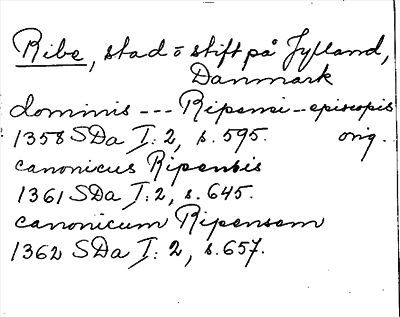 Ribe, stad o stift på Jylland,
Danmark
dominis --- Ripensi - episcopis
1358 SDa I: 2, s. 595. orig.
canonicus Ripensis
1361 SDa I: 2, s. 645.
canonicum Ripensem
1362 SDa I: 2, s. 657.